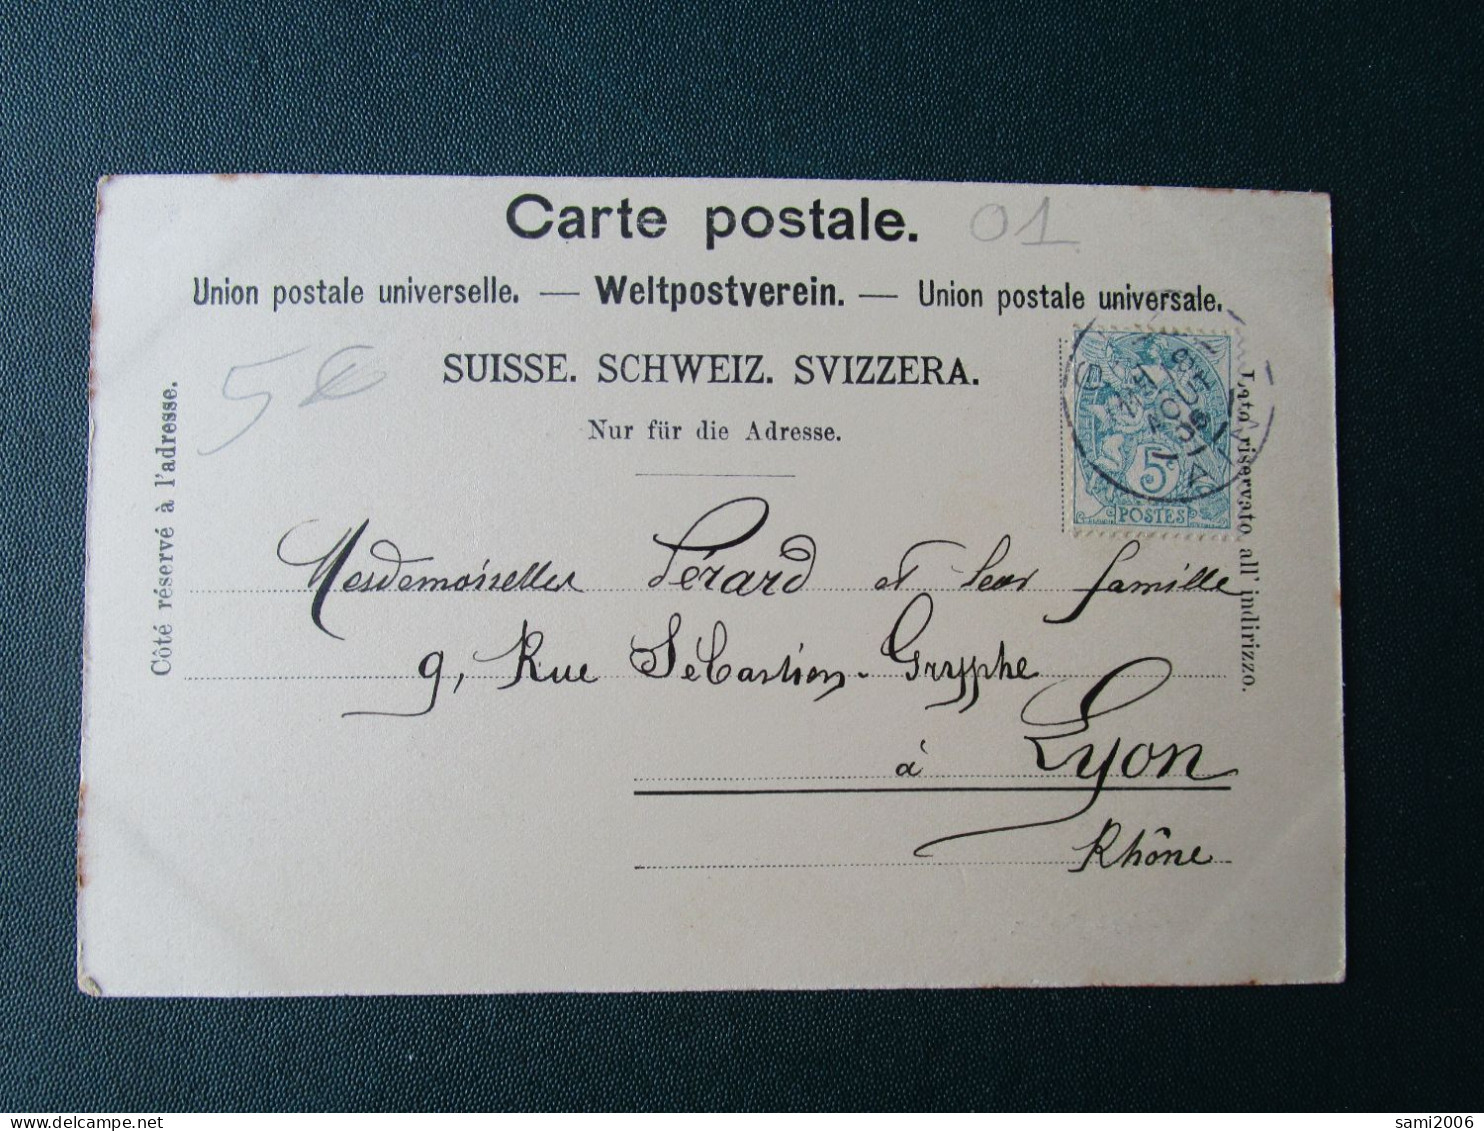 Carte postale.
01
Union postale universelle. — Weltpostverein. — Union postale universale.
5€
SUISSE. SCHWEIZ. SVIZZERA.
Nur für die Adresse.
Côté réservé à l'adresse.
Lato riservato all' indirizzo.
AOUT
5c
POSTES
Mesdemoiselles Pérard et leur famille
9, Rue Sébastien-Gryphe
à Lyon
Rhône
sami2006